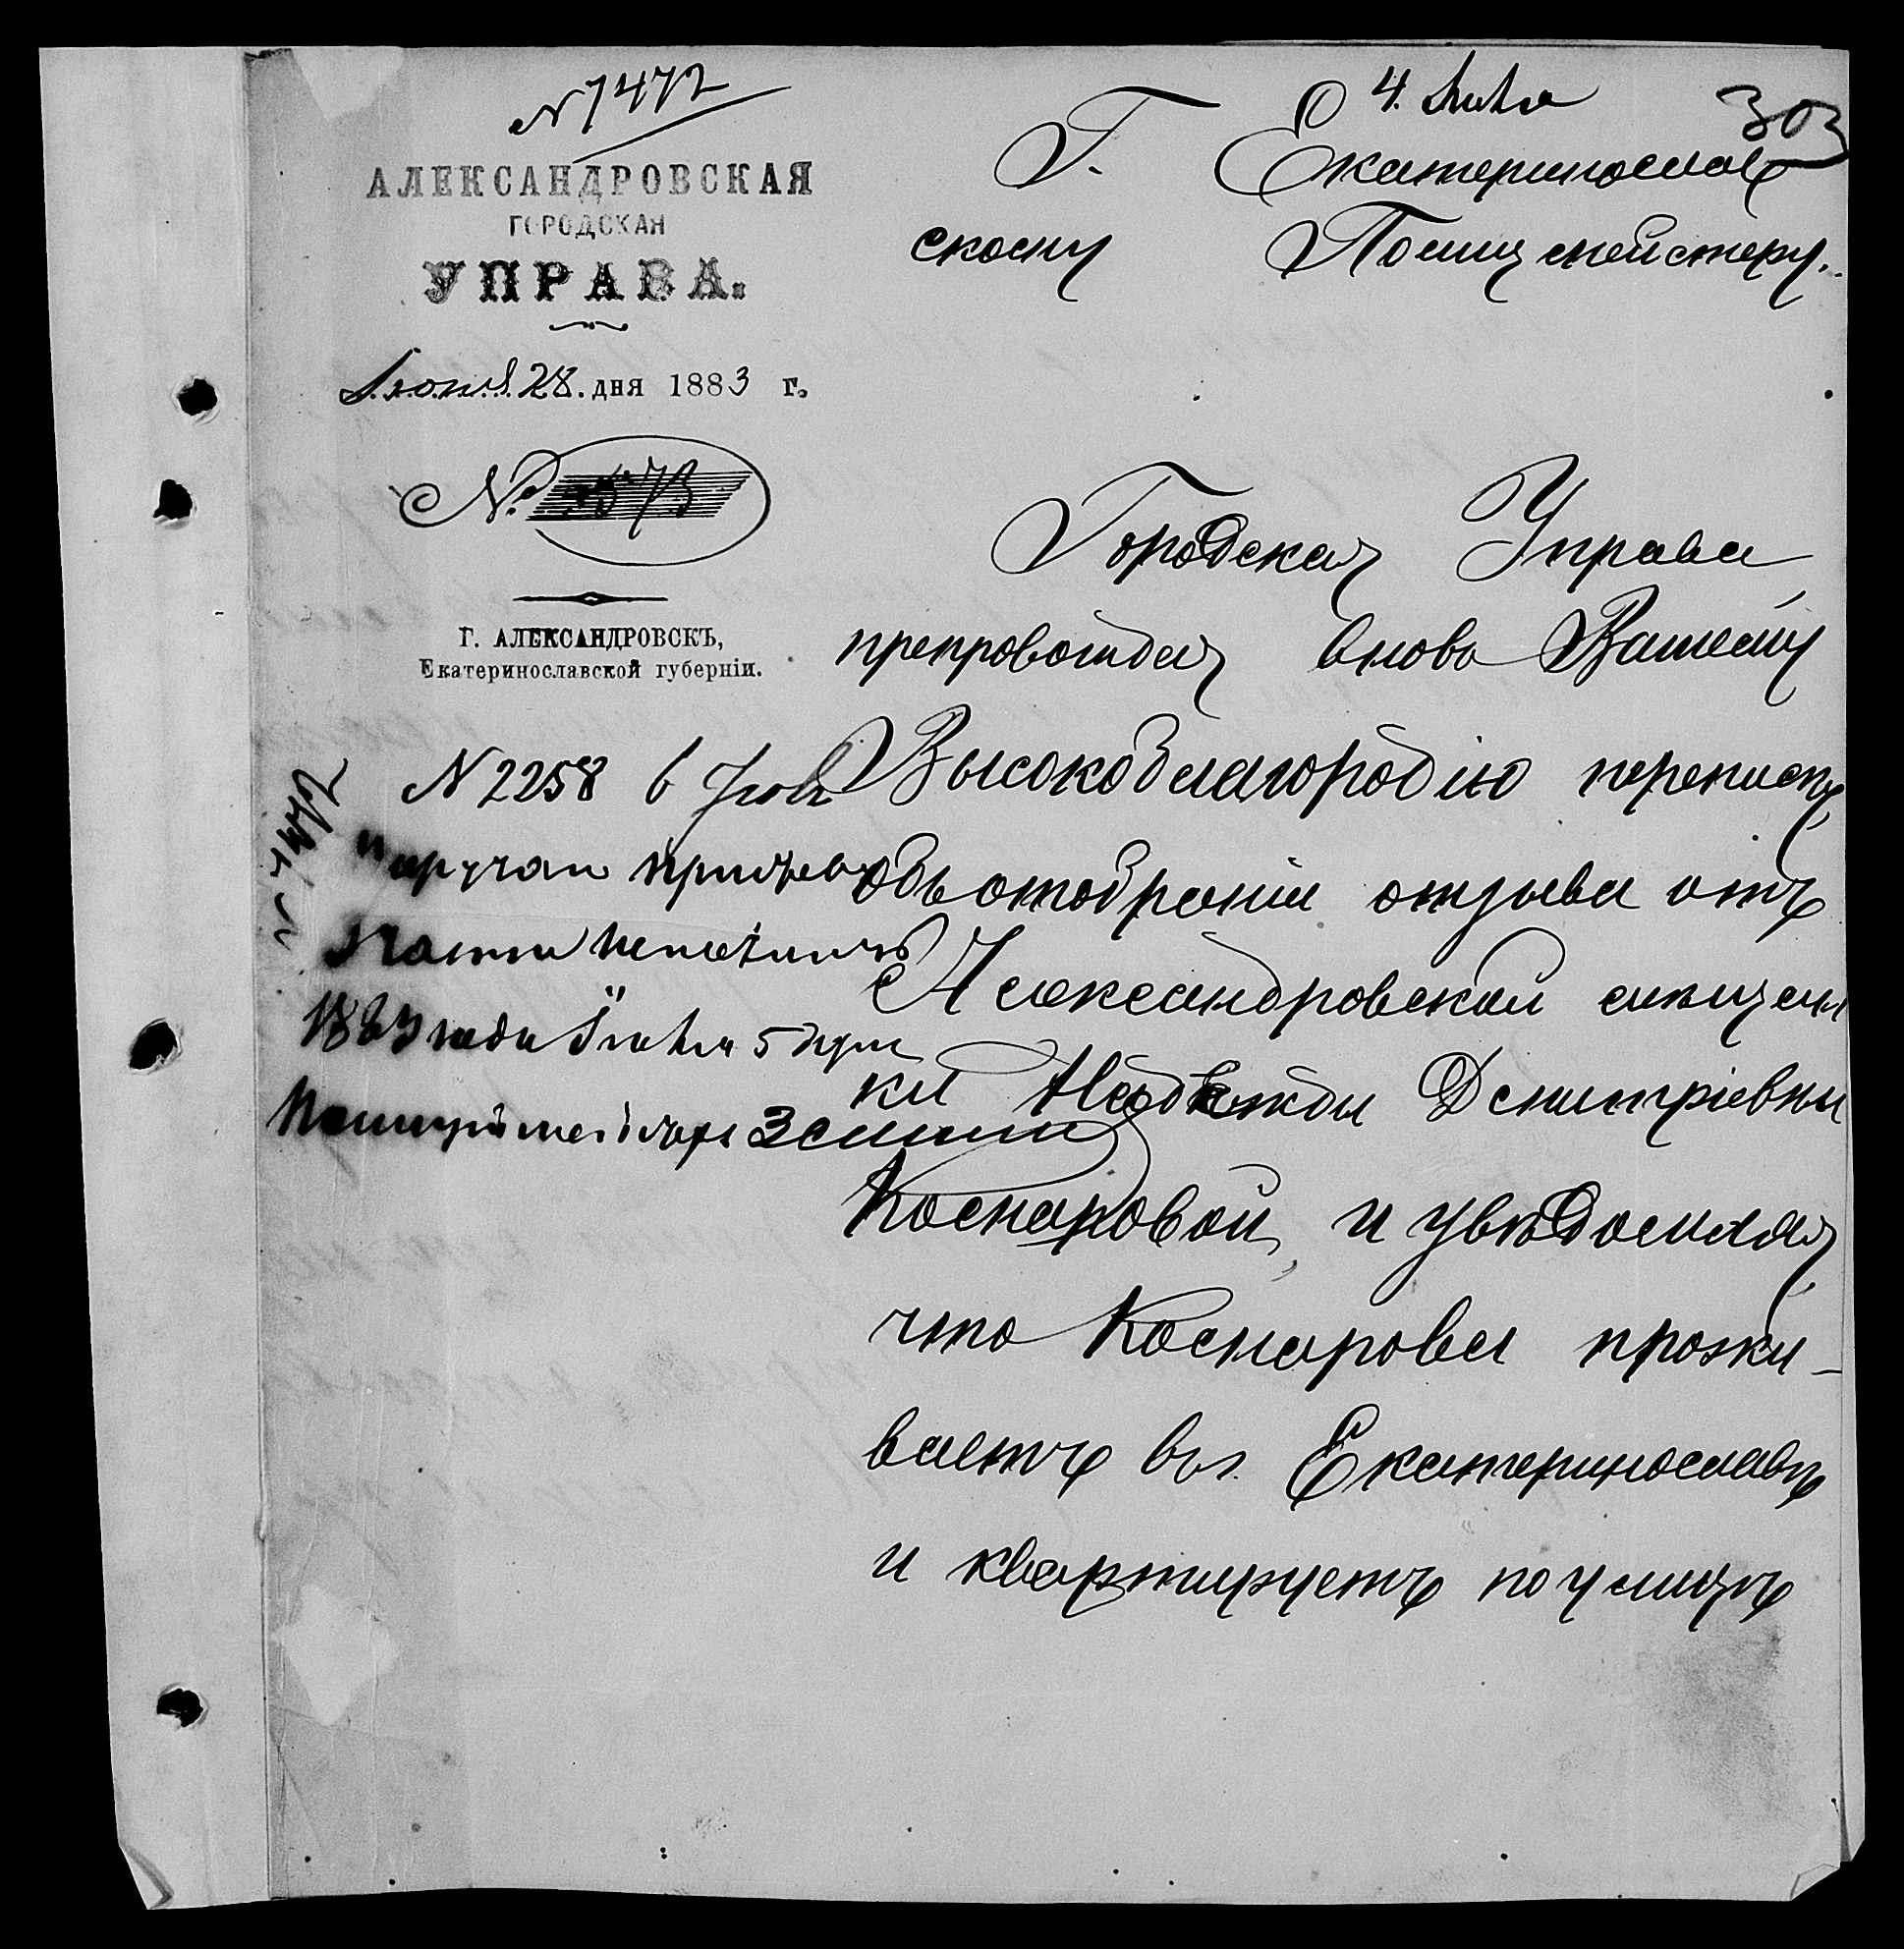 N 7472
АЛЕКСАНДРОВСКАЯ
ГОРОДСКАЯ
УПРАВА.
Іюня 28. дня 1883 г.
№ 3573
Г. АЛЕКСАНДРОВСКЪ,
Екатеринославской губерніи.
4. Іюля
303
Г. Екатеринослав
скому Полицмейстеру.
Городская Управа
препровождая вновь Вашему
Высокоблагородію переписку
объ отобраніи отзыва отъ
Александровской мѣщан
ки Надежды Дмитріевны
Комаровой, и увѣдомляя
что Комарова прожи-
ваетъ въ г. Екатеринославѣ
и квартируетъ по улицѣ
N 2258 6 Іюля
поручаю приставу
части исполнить
1883 года Іюля 5 дня
Полицеймейстеръ
N 7472